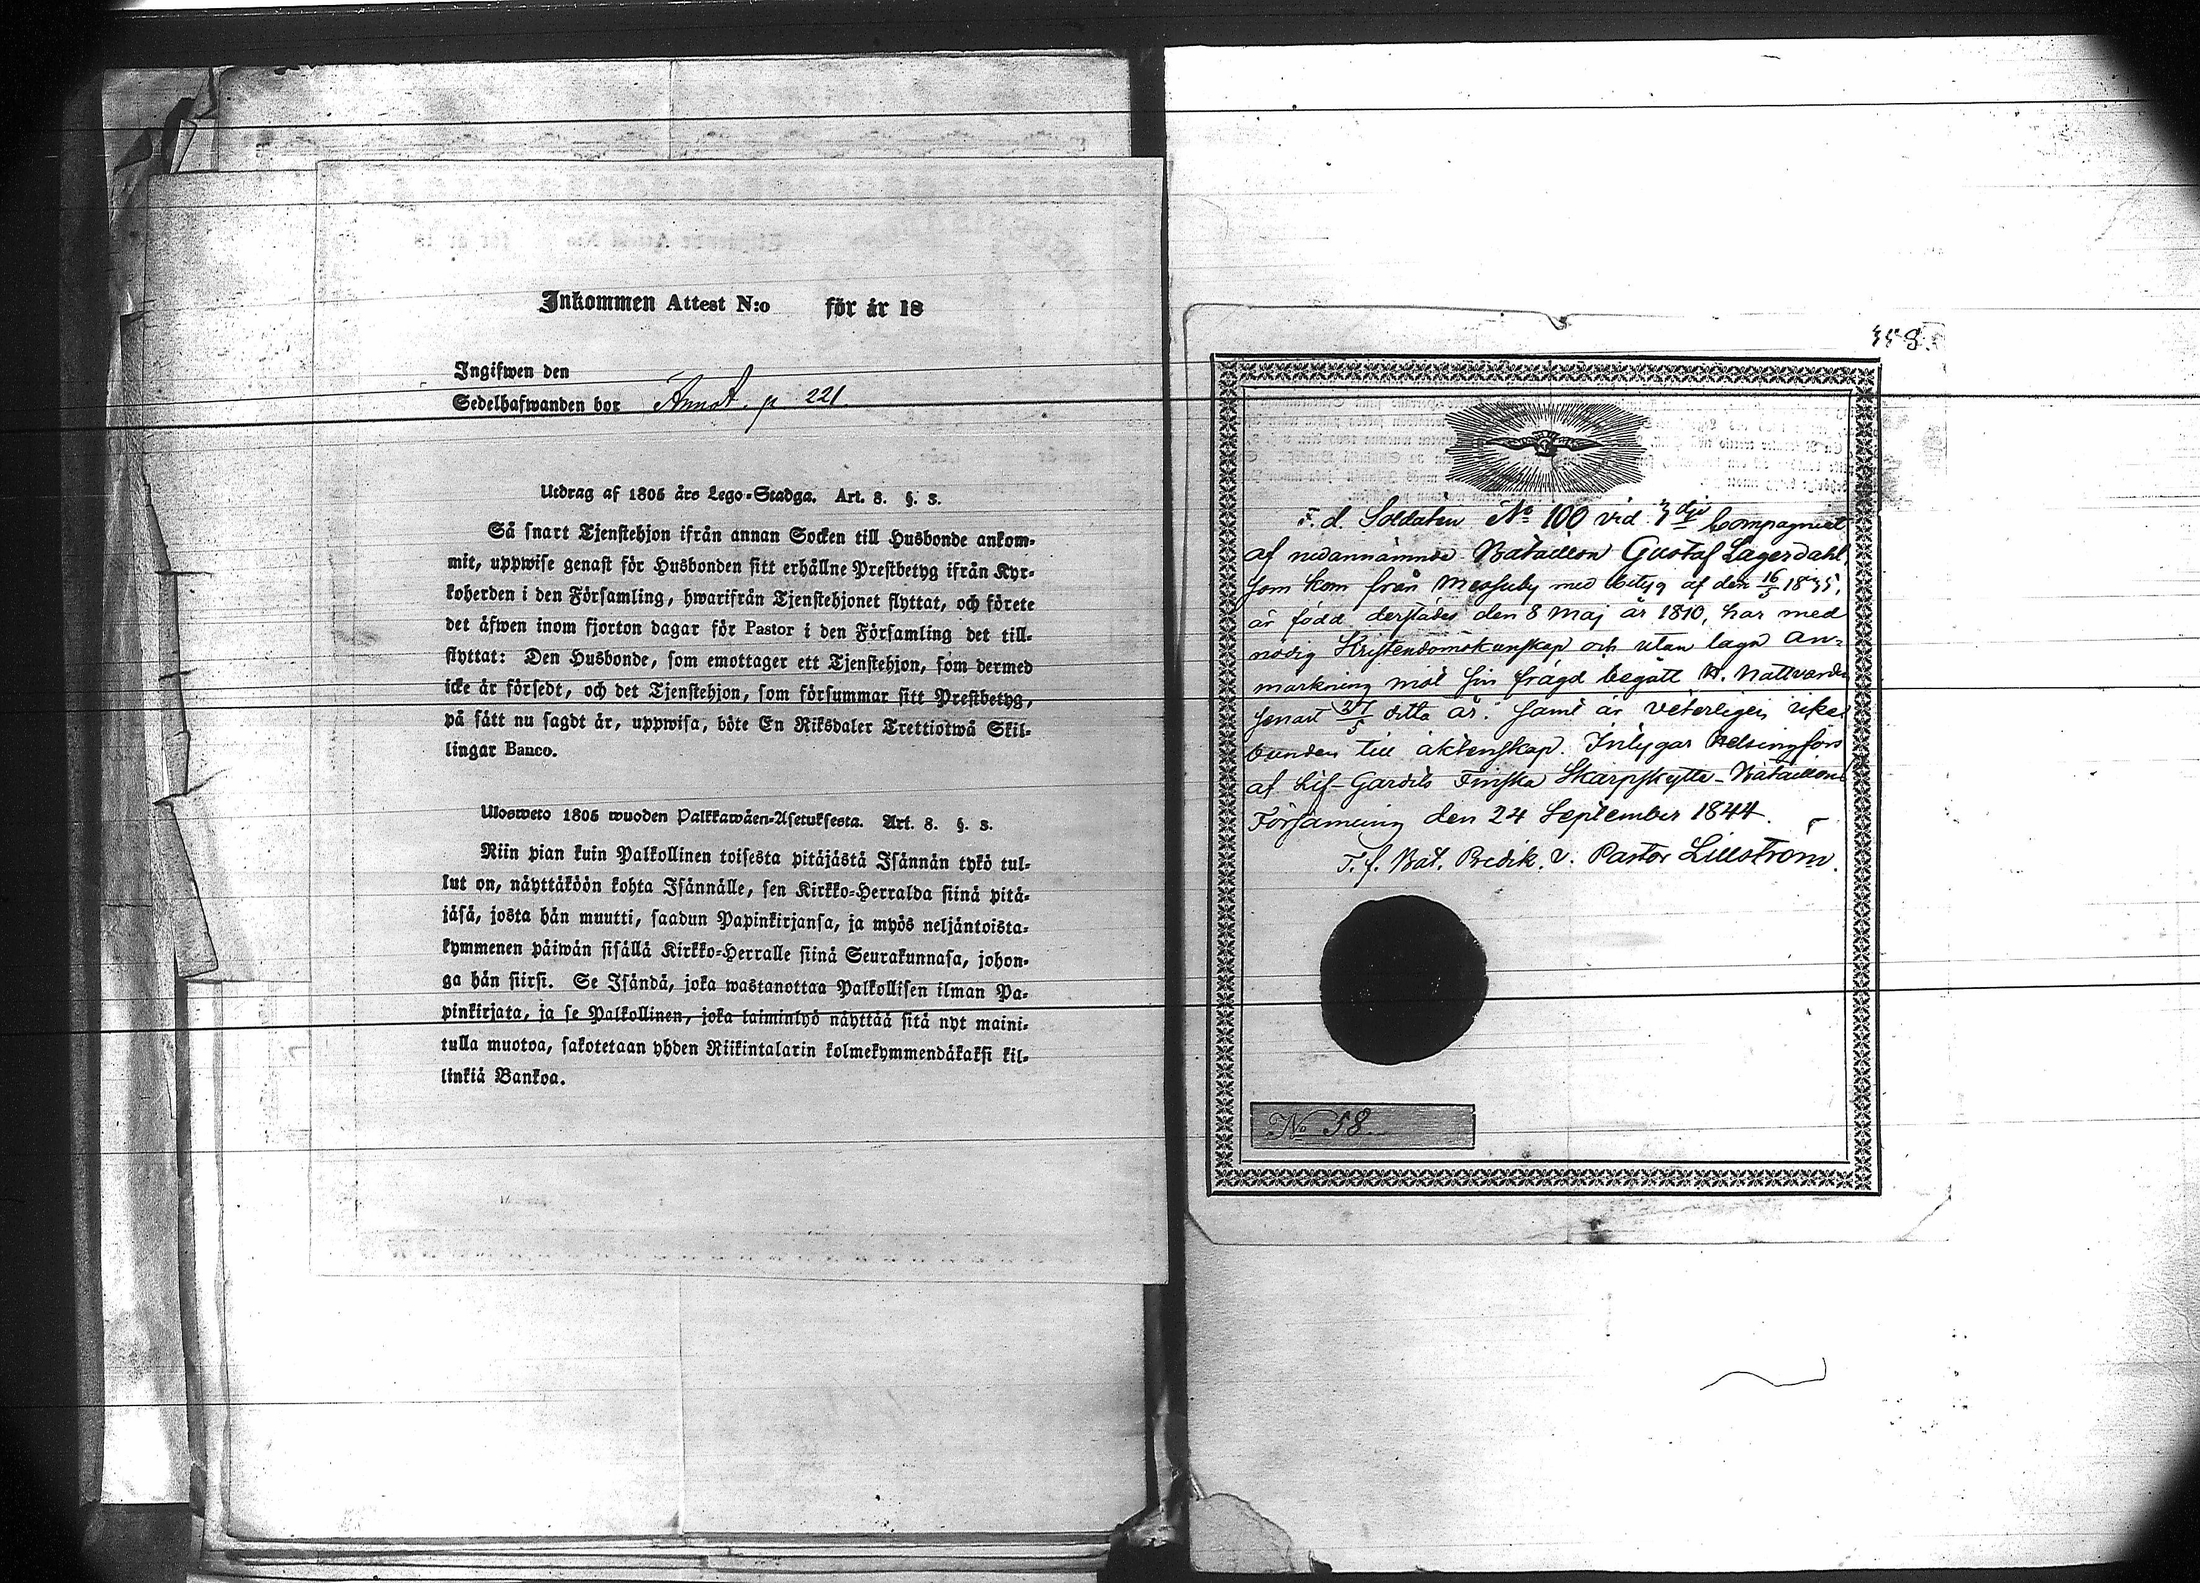 Inkommen Attest N:o för år 18
Ingifwen den
Sedelhafwanden bor Annot. p 221.
Utdrag af 1805 års Lego-Stadga. Art. 8. §. 3.
Så snart Tjenstehjon ifrån annan Socken till Husbonde ankom-
mit, uppwise genast för Husbonden sitt erhållne Prestbetyg ifrån Kyr-
koherden i den Församling, hwarifrån Tjenstehjonet flyttat, och förete
det äfwen inom fjorton dagar för Pastor i den Församling det till-
flyttat: Den Husbonde, som emottager ett Tjenstehjon, som dermed
icke är försedt, och det Tjenstehjon, som försummar sitt Prestbetyg,
på sätt nu sagdt är, uppwisa, böte En Riksdaler Trettiotwå Skil-
lingar Banco.
Ulosweto 1805 wuoden Palkkawäen-Asetuksesta. Art. 8. §. 3.
Niin pian kuin Palkollinen toisesta pitäjästä Isännän tykö tul-
lut on, näyttäköön kohta Isännälle, sen Kirkko-Herralda siinä pitä-
jäsä, josta hän muutti, saadun Papinkirjansa, ja myös neljäntoista-
kymmenen päiwän sisällä Kirkko-Herralle siinä Seurakunnasa, johon-
ga hän siirsi. Se Isändä, joka wastanottaa Palkollisen ilman Pa-
pinkirjata, ja se Palkollinen, joka laiminlyö näyttää sitä nyt maini-
tulla muotoa, sakotetaan yhden Riikintalarin kolmekymmendäkaksi kil-
linkiä Bankoa.
358.
F. d. Soldaten No 100 vid 3dje Compagniet
af nedannämnde Bataillon Gustaf Lagerdahl,
som kom från Messuby med betyg af den 16/5 1835,
är född derstädes den 8 Maj år 1810, har med
nödig Kristendomskunskap och utan laga An-
märkning mot sin frägd begått H. Nattvarden
senast 27/5 detta år. samt är veterligen icke
bunden till äktenskap. Intygar Helsingfors
af Lif-Gardets Finska Skarpskytte-Bataillons
Församling den 24 September 1844.
T. f. Bat. Predik. v. Pastor Lillström.
No 58.